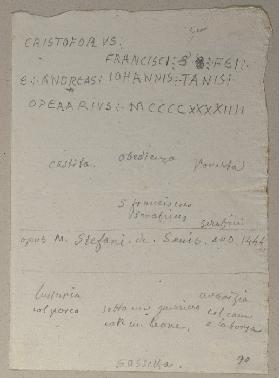 CRISTOFORVS.
FRANCISCI FEI
E ANDREAS IOHANNIS TANIS
OPERARIUS MCCCCXXXXIIII
castita. obedienza Poverta
S. francisco
Serafini
opus M. Stefani. de. Senis. anno 1444
lussuria
col porco
sotto un guerriero
col leone.
avarizia
col cane
e la borsa
Sassetta.
90